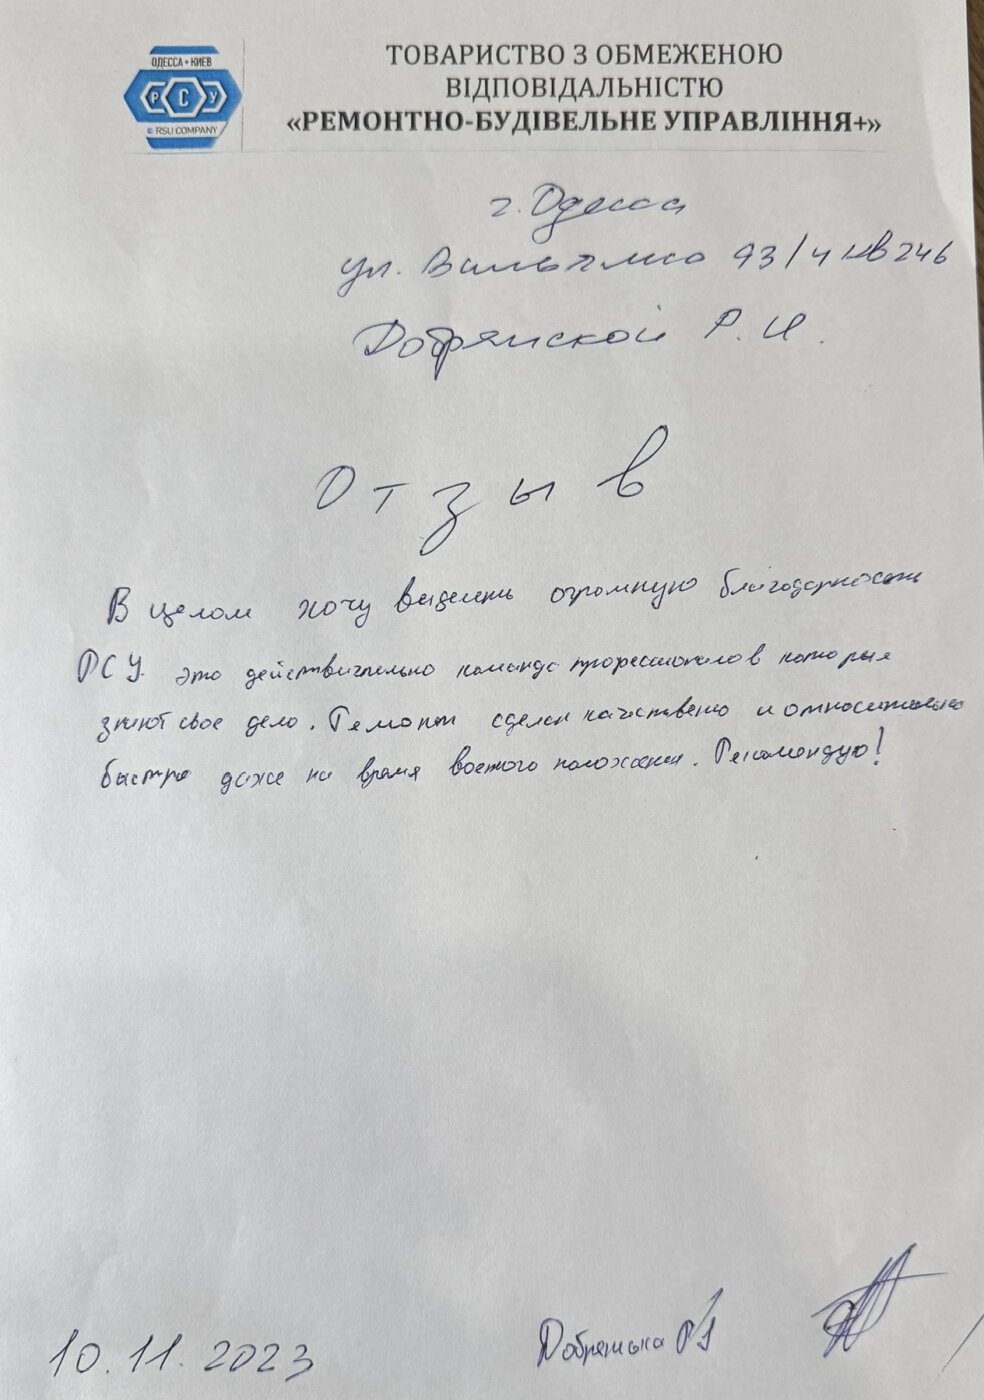 ОДЕССА • КИЕВ
РСУ
© RSU COMPANY
ТОВАРИСТВО З ОБМЕЖЕНОЮ
ВІДПОВІДАЛЬНІСТЮ
«РЕМОНТНО-БУДІВЕЛЬНЕ УПРАВЛІННЯ+»
г. Одесса
ул. 93/4 кв 246
Добрянской Р. И.
Отзыв
В целом хочу огромную благодарность
РСУ. это действительно команда профессионалов которые
знают своё дело. Ремонт сделан качествено и относительно
быстро даже на время военого положения. Рекомендую!
10.11.2023
Добрянська Р І